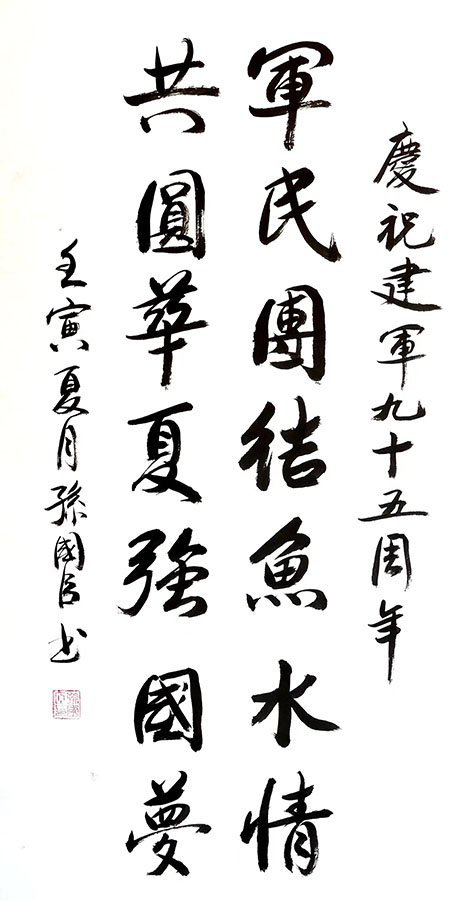 慶祝建軍九十五周年
軍民團結魚水情
共圓華夏強國夢
壬寅夏月孫國臣书